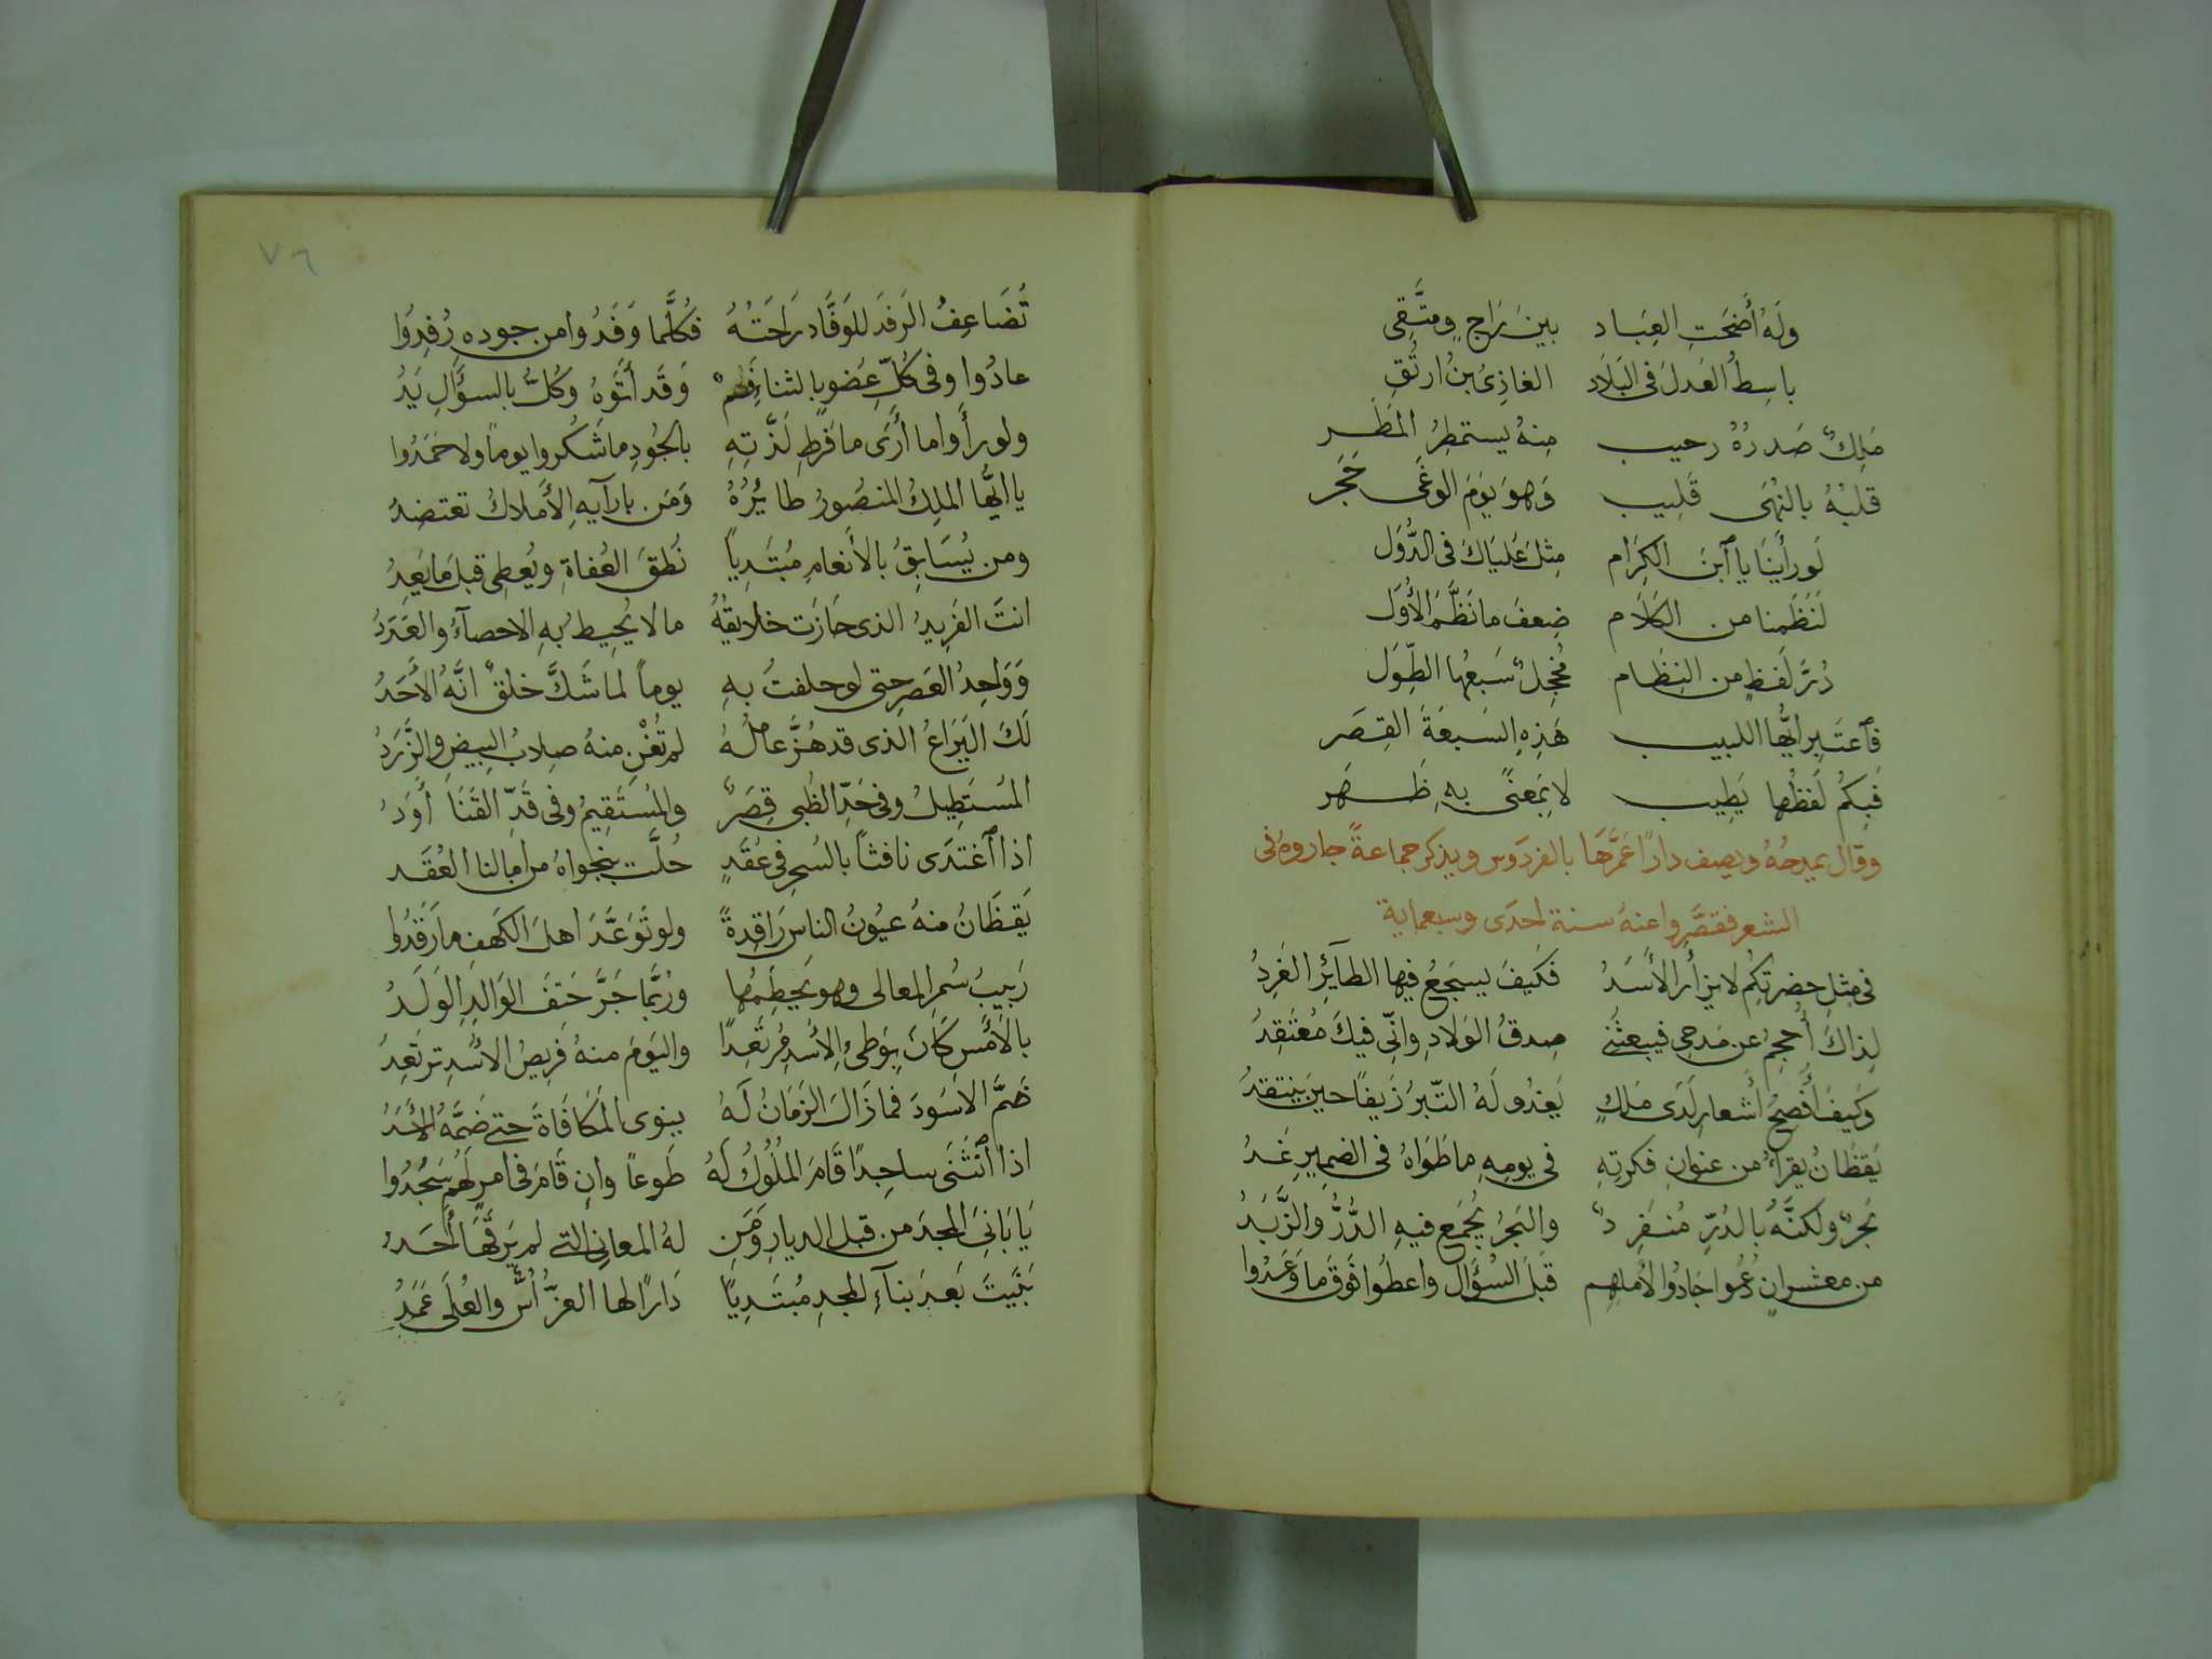 وَلَهُ أَضْحَتِ العِبَاد بينَ رَاجٍ ومتَّقِى
باسِطُ العَدلَ فى البَلَاد الغازِىُ بنُ ارتُقِ
مَلِكٌ صَدرُهُ رحيب مِنهُ يستمطِرُ المَطَر
قلبُهُ بالنُهَى قَلِيب وَهوَ يَومَ الوغَى حَجَر
لَو رأينَا يا ٱبنَ الكِرَام مِثلَ عَليَاكَ فى الدُّوَل
لَنَظَمنا من الكَلَام ضِعفَ ما نَظَّمَ الأُوَل
دُرَّ لَفظٍ من النِظَام مُخجِلٌ سَبعُها الطِّوَل
فٱعتَبِر ايُّها اللبيب هَذِهِ السَبعَةَ القِصَر
فَبِكُم لَفظُها يَطِيب لا بمَعنًى بهِ ظَهَر
وقال يمدحُهُ ويصف دارًا عَمَّرهَا بالفردَوس ويذكر جماعةً جاروهُ فى
الشعر فقصَّروا عنهُ سنة احدَى وسبعماية
فى مِثلِ حضرتِكُم لا يزأر الأسَدُ فَكَيفَ يسجَعُ فيها الطآئِر الغَرِدُ
لِذاكَ أُحجِمُ عن مَدحى فيبعثُنى صِدقُ الوَلادِ وانّى فيكَ مُعْتَقِدُ
وَكَيفَ أُفصِحُ أشعار لَدَى مَلكٍ يَغدُو لَهُ التّبرُ زَيفًا حينَ ينتقدُ
يَقظَانُ يقرأُ من عنوانِ فكرتِهِ فى يومِهِ ما طَوَاهُ فى الضمِيرِ غَدُ
بَحرٌ ولكنَّهُ بالدُرِّ مُنفَرِدٌ والبَحرُ يُجمَع فيهِ الدُّرُّ والزَّبَدُ
من معشرٍ ان دُعُوا جَادُوا لآملِهِم قبلَ السُؤَال واعطَوا فَوقَ ما وَعَدُوا
تَضَاعِفُ الرَفدَ للوَفَّادِ رَاحَتُهُ فكُلَّما وَفَدُوا من جودهِ رُفِدُوا
عادُوا وفى كُلِّ عضوٍ بالثناءِ فَمٌ وَقَد أتَوهُ وَكُلٌّ بالسؤالِ يَدُ
ولو رأَوا ما أرَى ما فَرطِ لَذَّتهِ بالجُودِ ما شَكَروا يوماً ولا حَمَدُوا
يا ايّها الملِكُ المنصُورُ طايُرُهُ وَمَن بارآيهِ الأملاكُ تعتضدُ
ومن يُسَابِقُ بالأنعامِ مُبتَدِياً نُطقَ العُفاةِ ويُعطِى قبلَ ما يَعِدُ
انتَ الفَرِيدُ الذى حَازَت خلايقُهُ ما لا يُحِيطُ بهِ الاحصآءُ والعَدَدُ
وَوَاحِدُ العَصرِ حتى لو حلفتُ بهِ يوماً لما شَكَّ خلقٌ انَّهُ الأحَدُ
لَكَ اليَرَاعُ الّذى قد هُزَّ عامِلُهُ لم تُغْنِ منهُ صِلابُ البِيضِ والزَّرَدُ
المُستَطِيلُ وفى حَدِّ الظُبى قِصَرٌ والمُستَقِيمُ وفى قَدِّ القَنَا أوَدُ
اذا ٱغتَدَى نافثاً بالسُحرِ فى عُقَدٍ حُلَّت بنجواهُ من امالنا العُقَد
يَقظَانُ منهُ عيُونُ الناسِ رَاقِدةً ولو تَوَعَّدَ اهلَ الكَهفِ ما رَقَدُوا
رَبِيبُ سُمرِ المعالى وهو يَحطِمُها ورُبَّما جَرَّ حَتفَ الوَالِدِ الوَلَدُ
بالأمسِ كَانَ بِوَطىءِ الأُسدِ مُرتَعِدًا واليَومَ منهُ فَرِيصُ الأُسْدِ ترتعِدُ
ضَمَّ الاسَودَ فما زَالَ الزَمَانُ لَهُ ينوى المُكَافَاةَ حتى ضَمَّهُ الأَسَدُ
اذا ٱنْثَنَى ساجِدًا قَامَ المُلُوكُ لَهُ طَوعاً وان قَامَ فى امرٍ لَهُم سَجَدُوا
يَا بَانِىَ المجدَ من قبل الديارِ وَمَن لهُ المعانِى التى لم يَرقَهَا أحَدُ
بَنَيتَ بَعدَ بنآءِ المجدِ مُبتَدِيًا دَارًا لها العزُّ أُسٌّ والعُلَى عَمَدُ
٧٦